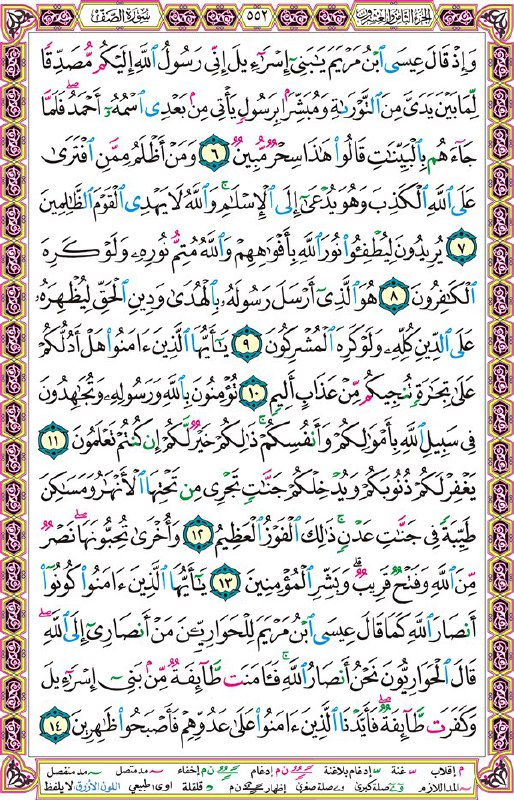 الجزء الثامن والعشرون ٥٥٢ سورة الصف
وَإِذْ قَالَ عِيسَى ٱبْنُ مَرْيَمَ يَـٰبَنِىٓ إِسْرَٰٓءِيلَ إِنِّى رَسُولُ ٱللَّهِ إِلَيْكُم مُّصَدِّقًا
لِّمَا بَيْنَ يَدَىَّ مِنَ ٱلتَّوْرَىٰةِ وَمُبَشِّرًۢا بِرَسُولٍ يَأْتِى مِنۢ بَعْدِى ٱسْمُهُۥٓ أَحْمَدُ ۖ فَلَمَّا
جَآءَهُم بِٱلْبَيِّنَـٰتِ قَالُوا۟ هَـٰذَا سِحْرٌ مُّبِينٌ ٦ وَمَنْ أَظْلَمُ مِمَّنِ ٱفْتَرَىٰ
عَلَى ٱللَّهِ ٱلْكَذِبَ وَهُوَ يُدْعَىٰٓ إِلَى ٱلْإِسْلَـٰمِ ۚ وَٱللَّهُ لَا يَهْدِى ٱلْقَوْمَ ٱلظَّـٰلِمِينَ
٧ يُرِيدُونَ لِيُطْفِـُٔوا۟ نُورَ ٱللَّهِ بِأَفْوَٰهِهِمْ وَٱللَّهُ مُتِمُّ نُورِهِۦ وَلَوْ كَرِهَ
ٱلْكَـٰفِرُونَ ٨ هُوَ ٱلَّذِىٓ أَرْسَلَ رَسُولَهُۥ بِٱلْهُدَىٰ وَدِينِ ٱلْحَقِّ لِيُظْهِرَهُۥ
عَلَى ٱلدِّينِ كُلِّهِۦ وَلَوْ كَرِهَ ٱلْمُشْرِكُونَ ٩ يَـٰٓأَيُّهَا ٱلَّذِينَ ءَامَنُوا۟ هَلْ أَدُلُّكُمْ
عَلَىٰ تِجَـٰرَةٍ تُنجِيكُم مِّنْ عَذَابٍ أَلِيمٍ ١٠ تُؤْمِنُونَ بِٱللَّهِ وَرَسُولِهِۦ وَتُجَـٰهِدُونَ
فِى سَبِيلِ ٱللَّهِ بِأَمْوَٰلِكُمْ وَأَنفُسِكُمْ ۚ ذَٰلِكُمْ خَيْرٌ لَّكُمْ إِن كُنتُمْ تَعْلَمُونَ ١١
يَغْفِرْ لَكُمْ ذُنُوبَكُمْ وَيُدْخِلْكُمْ جَنَّـٰتٍ تَجْرِى مِن تَحْتِهَا ٱلْأَنْهَـٰرُ وَمَسَـٰكِنَ
طَيِّبَةً فِى جَنَّـٰتِ عَدْنٍ ۚ ذَٰلِكَ ٱلْفَوْزُ ٱلْعَظِيمُ ١٢ وَأُخْرَىٰ تُحِبُّونَهَا ۖ نَصْرٌ
مِّنَ ٱللَّهِ وَفَتْحٌ قَرِيبٌ ۗ وَبَشِّرِ ٱلْمُؤْمِنِينَ ١٣ يَـٰٓأَيُّهَا ٱلَّذِينَ ءَامَنُوا۟ كُونُوٓا۟
أَنصَارَ ٱللَّهِ كَمَا قَالَ عِيسَى ٱبْنُ مَرْيَمَ لِلْحَوَارِيِّـۧنَ مَنْ أَنصَارِىٓ إِلَى ٱللَّهِ ۖ
قَالَ ٱلْحَوَارِيُّونَ نَحْنُ أَنصَارُ ٱللَّهِ ۖ فَـَٔامَنَت طَّآئِفَةٌ مِّنۢ بَنِىٓ إِسْرَٰٓءِيلَ
وَكَفَرَت طَّآئِفَةٌ ۖ فَأَيَّدْنَا ٱلَّذِينَ ءَامَنُوا۟ عَلَىٰ عَدُوِّهِمْ فَأَصْبَحُوا۟ ظَـٰهِرِينَ ١٤
م إقلاب غنة إدغام بلاغنة ن م إدغام ن م إخفاء مد متصل مد منفصل
المد اللازم صلة كبرى صلة صغرى إظهار ن م قلقلة اوى: طبيعي اللون الأزرق لا يلفظ